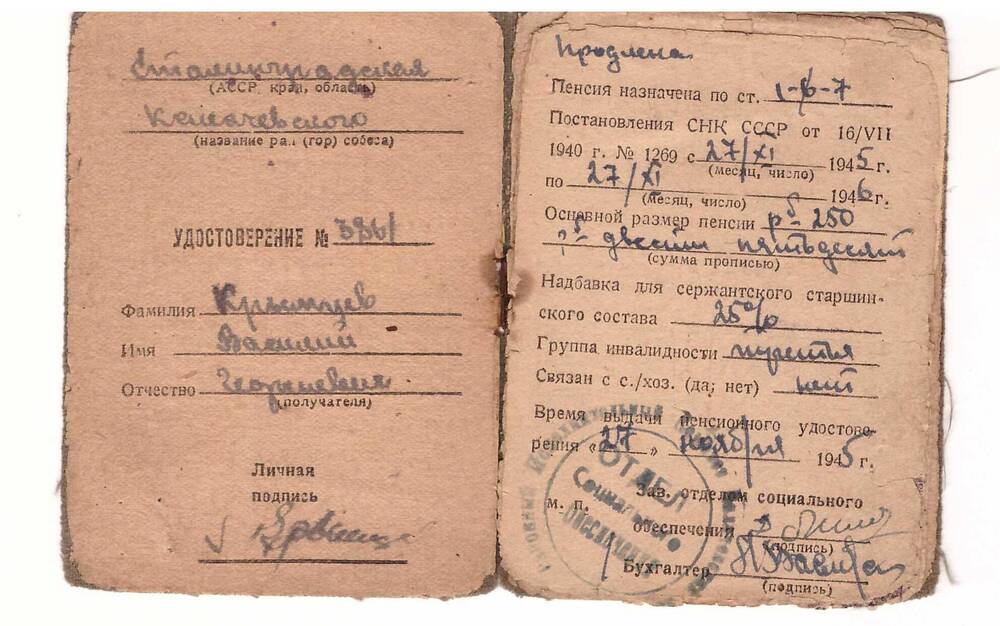 Сталинградская
(АССР, край, область)
(название рай (гор) собеса)
УДОСТОВЕРЕНИЕ № 386/
Фамилия Крымцев
Имя Василий
Отчество Георгиевич
(получателя)
Личная
подпись
Продлена
Пенсия назначена по ст. 1-6-7
Постановления СНК СССР от 16/VII
1940 г. № 1269 с 27/XI 1945 г.
(месяц, число)
по 27/XI 1946 г.
(месяц, число)
Основной размер пенсии р- 250
двести пятьдесят
(сумма прописью)
Надбавка для сержантского старшин-
ского состава 25%
Группа инвалидности третья
Связан с с./хоз. (да, нет) нет
Время выдачи пенсионного удостове-
рения «27» ноября 1945 г.
Зав. отделом социального
м. п. обеспечения
(подпись)
Бухгалтер
(подпись)
ОТДЕЛ
Социального
Обеспечения